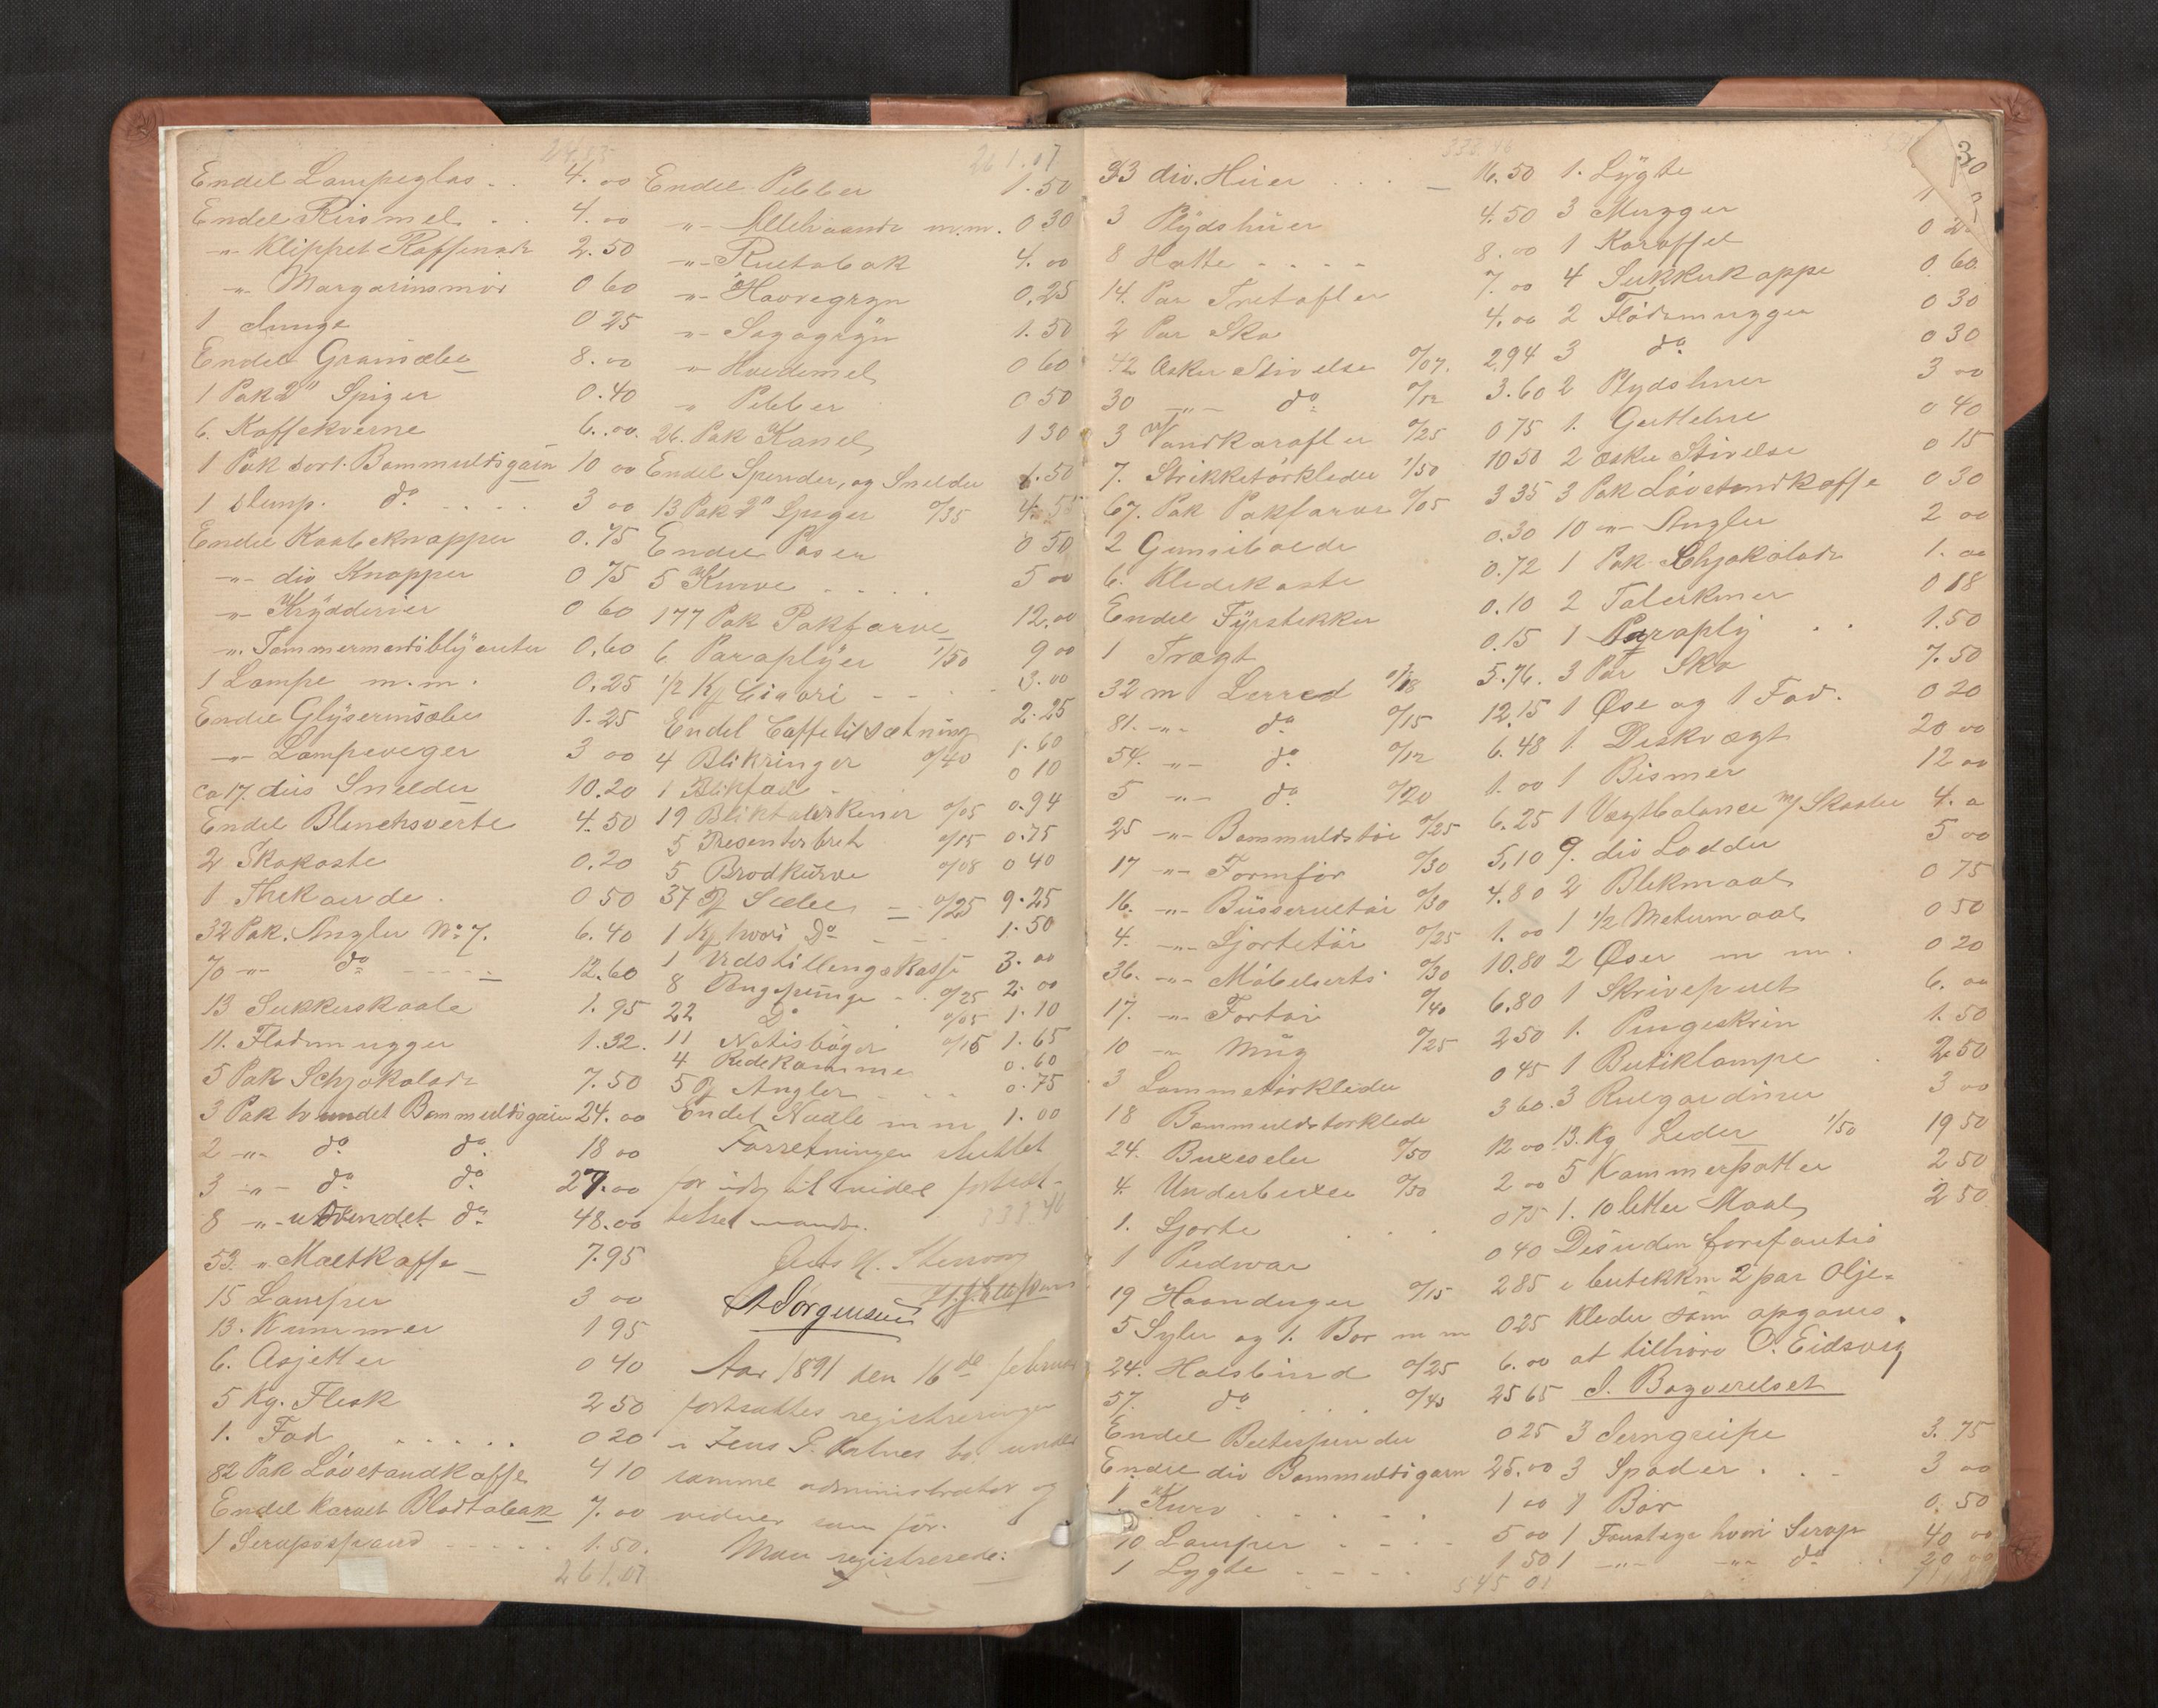 Endel Lampeglas . . 4. 00
Endel Rismel . . 4. 00
-"- Klippet Raffenade 2. 50
-"- Margarinsmör 0 60
1 Lunge 0 25
Endel Grønsæbe 8. 00
1 Pak 2" Spiger 0. 40
6. Kaffekverne 6. 00.
1 Pak sort. Bommuldsgarn 10 00
1 slump. do . . . . 3 00
Endel Kaabeknapper 0. 75
-"- div Knapper 0 75
-"- Krydderier 0 60
-"- Tømmermandsblyanter 0. 60
1 Lampe m.m. 0. 25
Endel Glyserinsæbe 1. 25
-"- Lampeveger 3 00
ca 17. dus Snelder 10. 20
Endel Blanksverte 4. 50
2 Skokoste 0. 20
1 Thekande . 0 50
32 Pak. Angler No 7. 6. 40
70 -"- do - - - - - 12. 60
13 Sukkerskaale 1. 95
11. Flødmugger 1. 32.
5 Pak Schjokolade 7. 50
3 Pak tvundet Bommuldsgarn 24. 00
2 -"- do do 18 00
3 -"- do do 27. 00
8 -"- utvundet do 48. 00
53. " Maltkaffe 7. 95
15 Lamper 3 00
13. Kummer 1 95
6. Asjetter 0 40
5 Kg. Flesk 2 50
1. Fad . . . . . 0 20
82 Pak Løvetandkaffe 4 10
Endel karvet Bladtobak 7. 00
1 Sirupsspand - - - - - 1. 50.
261.07
261.07
Endel Pebber 1. 50
-"- Allehaande m.m. 0 30
-"- Rultobak 4. 00
-"- Havregryn 0. 25
-"- Sagogryn 1. 50
-"- Hvedemel 0 60
" Pebber 0 50
26. Pak Kanel 1 30
Endel Spender, og Snelder 1. 50
13 Pak 2" Spiger 0/35 4. 55
Endel Poser 0 50
5 Kurve - - - . 5 00
177 Pak Pakfarve 12. 00
6 Paraplyer 1/50 9 00
1/2 Kg Cicori - - - - 3. 00
Endel Caffetilsætning 2. 25
4 Blikringer 0/40 1. 60
1 Blikfad - 0 10
19 Bliktalerkener 0/05 0. 94
5 Presenterbret 0/15 0. 75
5 Brødkurve 0/08 0 40
37 Sæbe - - 0/25 9. 25
1 Kg hvori Do - - - 1. 50
1 Udstillingskasse 3. 00
8 Pengepunge - . 0/25 2. 00
22 Do . 0/05 1. 10
11 Notisbøger 0/15 1. 65
4 Redekamme 0. 60
5 Angler - . . 0. 75
Endel Naale m m 1. 00
Forretningen sluttet
for idag til videre fortsæt-
telse mandag.
338.46
Jens
A Sørgensen
Aar 1891 den 16de februar
fortsattes registreringen
i Jens P. Kalnes bo under
samme administrator og
vidner som før.
Man registrerede:
338.46
33 div. Huer . . . - 16. 50
3 Plydshuer 4. 50
8 Hatte - - - - 8. 00
14. Par Tretøfler 7. 00
2 Par Sko 4. 00
42 Æsker Stivelse 0/07. 2,94
30 -"- do 0/12 3. 60
3 Vandkarafler 0/25 0 75
7. Strikketørkleder 1/50 10 50
67. Pak Pakfarve 0/05 3 35
2 Gumibolde 0. 30
6. Kledekoste 0. 72
Endel Fyrstekker 0. 10
1 Tragt 0. 15
32 m Lerred 0/18 5. 76.
81. -"- do 0/15 12. 15
54. -"- do 0/12 6. 48
5 -"- do 0/20 1. 00
25 -"- Bommuldstøi 0/25 6. 25
17 -"- Formfor 0/30 5, 10
16. -"- Busserultøi 0/30 4. 80
4. -"- Sjortetøi 0/25 1. 00
36. -"- Møbelserts 0/30 10. 80
17. -"- Fortøi 0/40 6. 80
10 -"- Mug 0/25 2 50
3 Lommetørkleder 0 45
18 Bommuldstørklede 3 60.
24. Buxeseler 0/50 12 00
4. Underbuxer 0/50 2 00
1. Sjorte . . . 0 75
1 Pudwar 0 40
19 Haanduger 0/15 2 85
5 Syler og 1. Bor m m 0 25
24. Halsbind 0/25 6. 00
57. do . . . 0/45 25 65
Endel Buxespender 0 25
Endel div Bommuldsgarn 25. 00
1. Kurv . . . . . . 1 00
10 Lamper - - - - 5 00
1 Lygte - - - - 1. 50
545 01
30
1. Lygte
3 Mugger
1 Karaffel 0 2
4 Sukkerkoppe 0. 60
2 Flødemugger 0 30
3 do 0 30
2 Plydshuer 3 00
1. Guttehue 0 40
2 æsker Stivelse 0 15
3 Pak Løvetandkaffe 0 30
10 -"- Angler 2 00
1 Pak Chjokolade 1. 00
2 Talerkner 0 18
1 Paraply . . 1. 50
3 Par Sko 7. 50
1 Øse og 1 Fad. 0 20
1. Diskvægt 20 00
1 Bismer 12 00
1 Vægtbalance m/ Skaaler 4. 0
9. div Lodder 5 00
2 Blikmaal 0 75
1 1/2 Metermaal 0 50
2 Øser m m . 0 20
1 Skrivepult 6. 00
1. Pengeskrin 1. 50
1 Butiklampe . 2. 50
3 Rulgardiner 3 00
13. Kg Leder 1/50 19 50
5 Kammerpotter 2 50
1. 10 litter Maal 2 50
Desuden forefantes
i butikken 2 par Olje-
kleder som opgaves.
at tilhøre O. Eidsvig
I. Bagverelset
3 Jerngreipe 3. 75
3 Spader . . - 3 00
1 Bor 0. 50
1 Foustage hvori Sirup 40 00
1 -"- -"- do . . 20 00